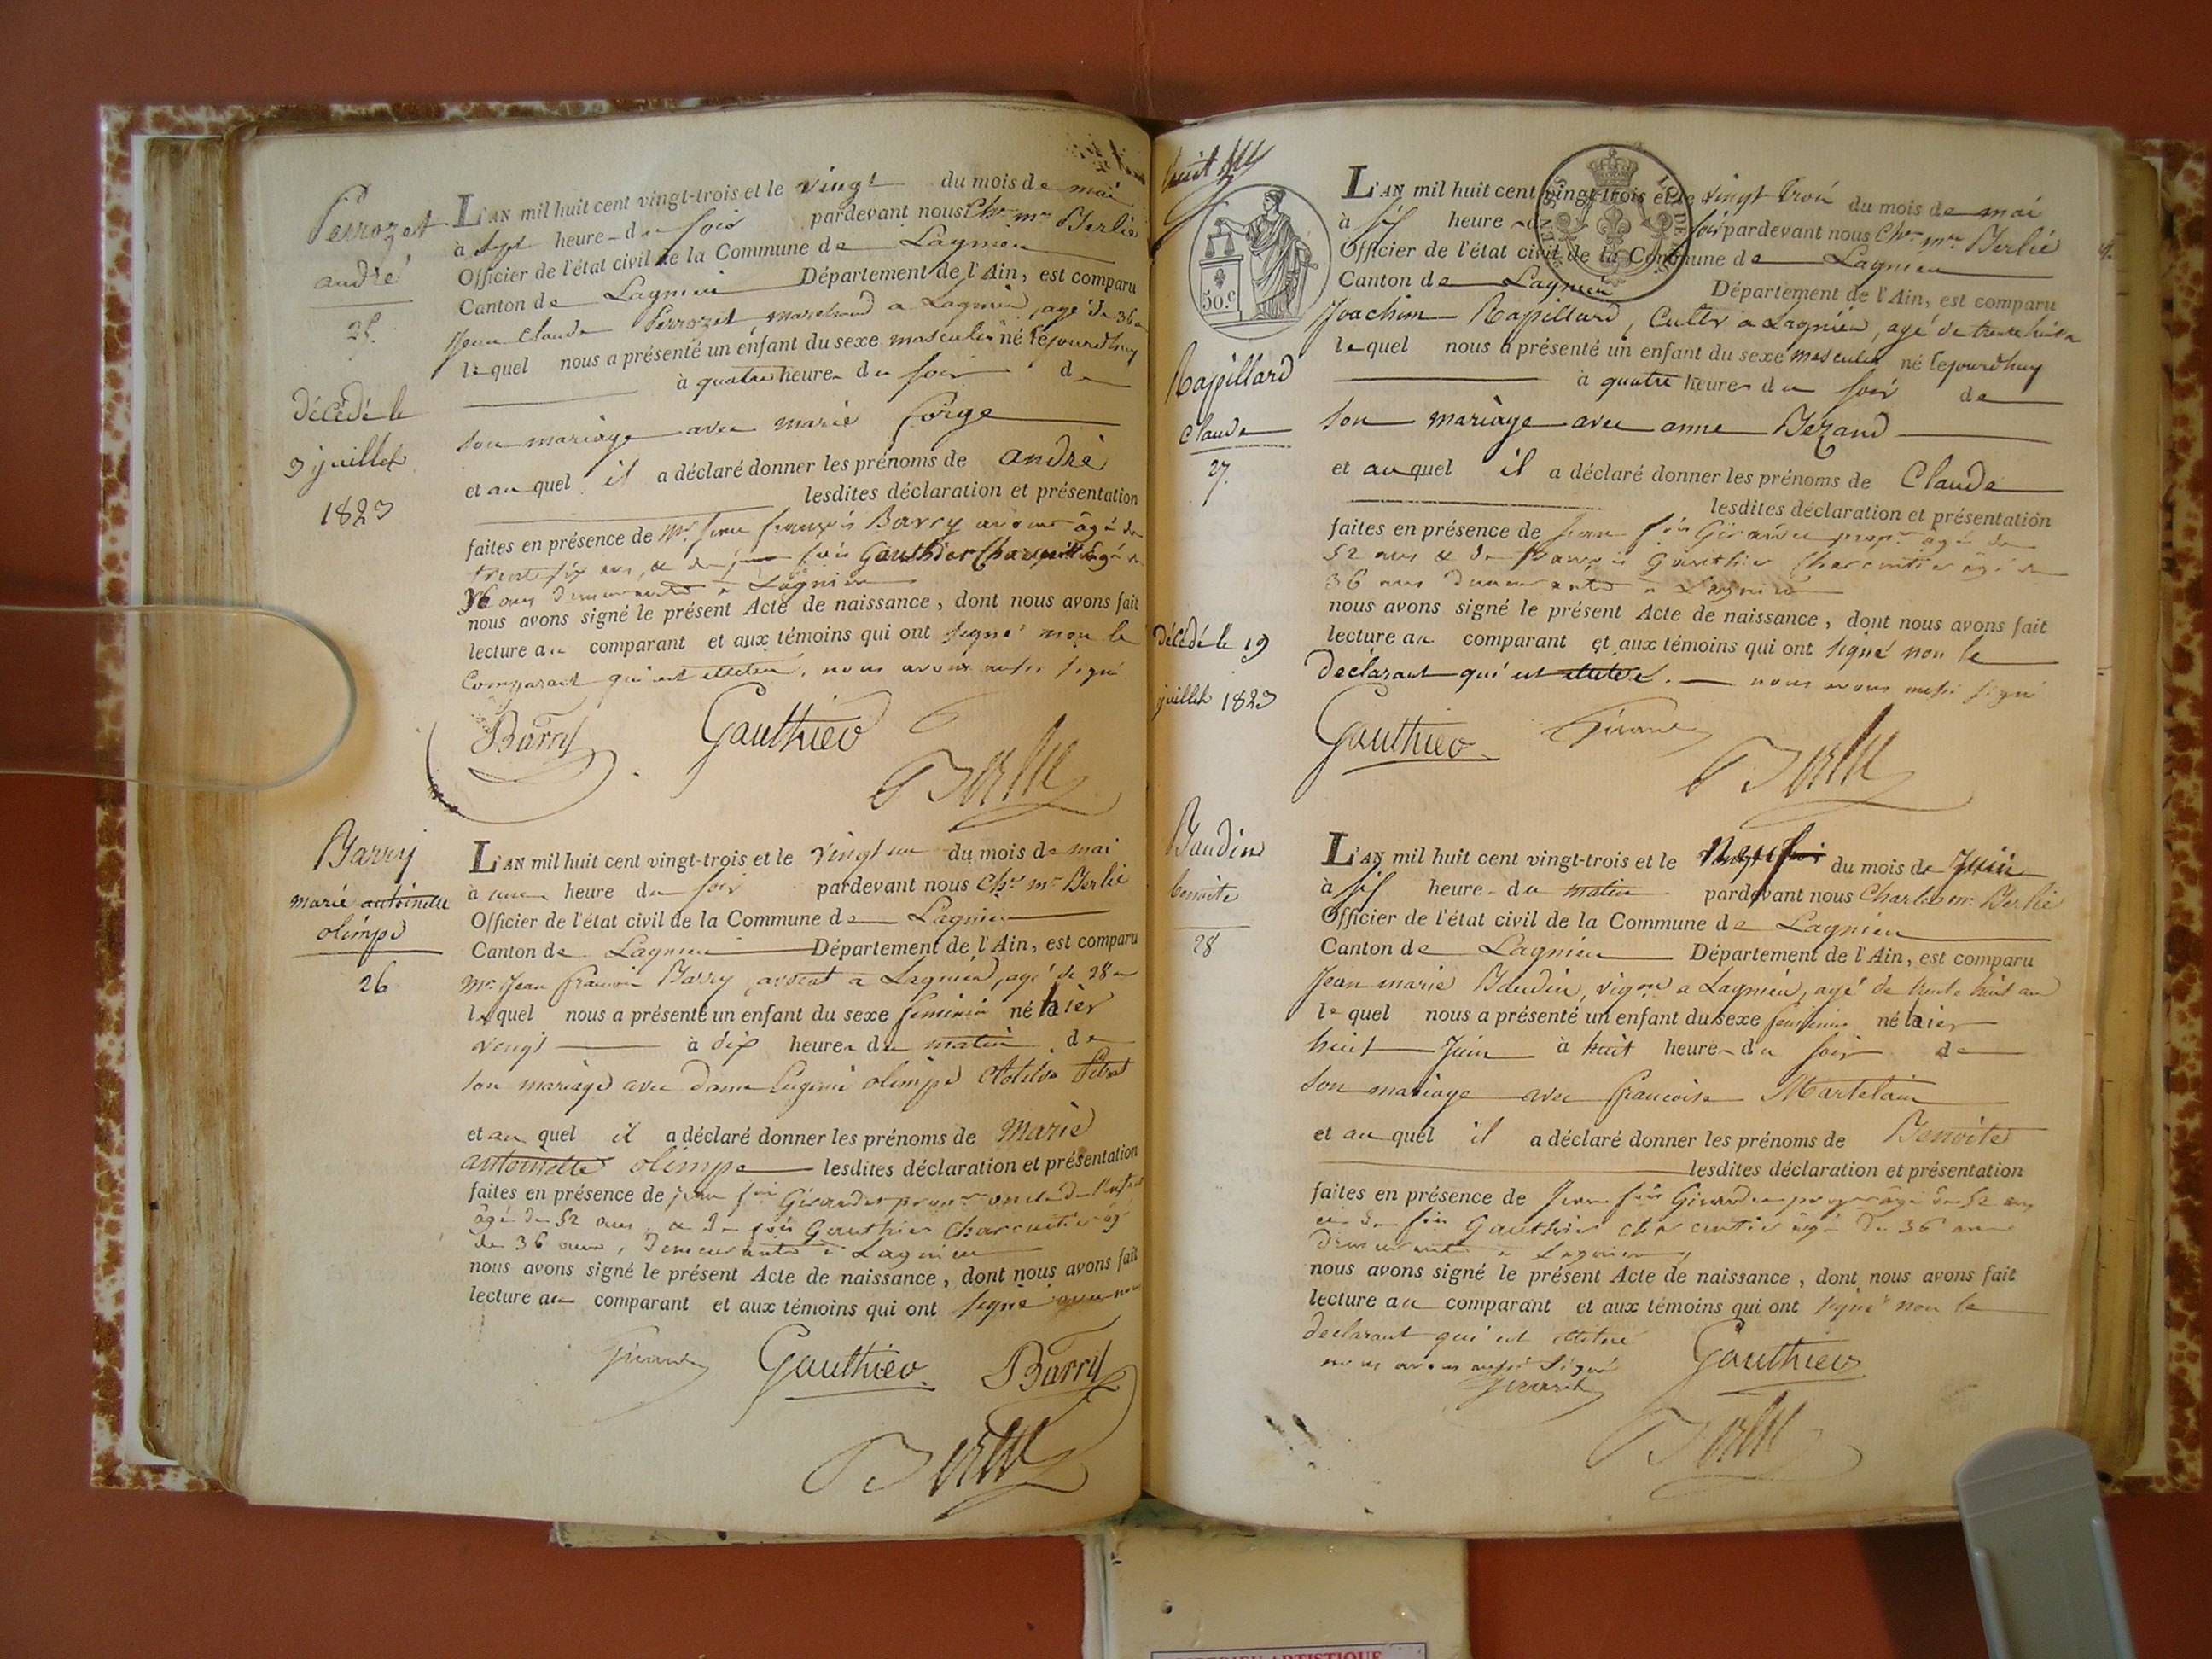 Perrozet
andré
25.
décédé le
3 juillet
1823
L'AN mil huit cent vingt-trois et le vingt du mois de mai
à sept heure du soir pardevant nous Chs. mie Berlié
Officier de l'état civil de la Commune de Lagnieu
Canton de Lagnieu Département de l'Ain, est comparu
Jean Claude Perrozet marchand a Lagnieu, agé de 36 a
lequel nous a présenté un enfant du sexe masculin né cejourdhuy
à quatre heures du soir de
son mariage avec marie forge
et auquel il a déclaré donner les prénoms de andré
lesdites déclaration et présentation
faites en présence de Mr. jean françois Barry âgé de
trente six ans, & de fois Gauthier Charcutier âgé de
36 ans demeurants à Lagnieu
nous avons signé le présent Acte de naissance, dont nous avons fait
lecture au comparant et aux témoins qui ont signé non le
Comparant qui est illitéré, nous avons aussi signé
Barry Gauthier
Berlié
Barry
marie antoinette
olimpe
26
L'AN mil huit cent vingt-trois et le vingt un du mois de mai
à une heure du soir pardevant nous Chs. mie Berlié
Officier de l'état civil de la Commune de Lagnieu
Canton de Lagnieu Département de l'Ain, est comparu
Mr. Jean francois Barry, avocat a Lagnieu, agé de 38 a
lequel nous a présenté un enfant du sexe feminin né hier
vingt à dix heures du matin de
son mariage avec dame Eugenie olimpe Clotilde
et auquel il a déclaré donner les prénoms de Marie
antoinette olimpe lesdites déclaration et présentation
faites en présence de jean fois Girardet propre oncle de l'enfant
âgé de 52 ans, & de fois Gauthier Charcutier âgé
de 36 ans, demeurants à Lagnieu
nous avons signé le présent Acte de naissance, dont nous avons fait
lecture au comparant et aux témoins qui ont signé avec nous
Girardet Gauthier Barry
Berlié
huit
50.c
Rapillard
Claude
27.
décédé le 19
juillet 1823
L'AN mil huit cent vingt-trois et le vingt trois du mois de mai
à six heure du soir pardevant nous Chs. mie Berlié
Officier de l'état civil de la Commune de Lagnieu
Canton de Lagnieu Département de l'Ain, est comparu
Joachim Rapillard, Cultr a Lagnieu, agé de trente huit a
lequel nous a présenté un enfant du sexe masculin né cejourdhuy
à quatre heures du soir de
son mariage avec anne Bezand
et auquel il a déclaré donner les prénoms de Claude
lesdites déclaration et présentation
faites en présence de jean fois Girardet propre âgé de
52 ans & de françois Gauthier Charcutier âgé de
36 ans demeurants à Lagnieu
nous avons signé le présent Acte de naissance, dont nous avons fait
lecture au comparant et aux témoins qui ont signé non le
déclarant qui est illitéré. nous avons aussi signé
Gauthier Girardet
Berlié
Baudin
benoite
28
L'AN mil huit cent vingt-trois et le neuf du mois de Juin
à six heures du matin pardevant nous Charles mie Berlié
Officier de l'état civil de la Commune de Lagnieu
Canton de Lagnieu Département de l'Ain, est comparu
Jean marie Baudin, vigon a Lagnieu, agé de trente huit an
lequel nous a présenté un enfant du sexe feminin né hier
huit Juin à huit heures du soir de
son mariage avec francoise Martelain
et auquel il a déclaré donner les prénoms de Benoite
lesdites déclaration et présentation
faites en présence de Jean fois Girardet propre âgé de 52 ans
et de fois Gauthier charcutier âgé de 36 ans
demeurants à Lagnieu
nous avons signé le présent Acte de naissance, dont nous avons fait
lecture au comparant et aux témoins qui ont signé non le
déclarant qui est illitéré
nous avons aussi signé Gauthier
Girardet
Berlié
ARTISTIQUE